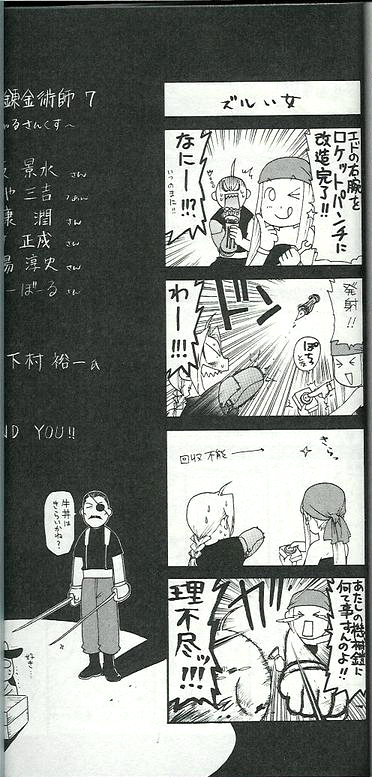 ズルい女
エドの右腕を
ロケットパンチに
改造完了!!
なにーー!!?
いつのまに!!
発射!!
ぽちっ
ドン
わーー!!!
きらっ
回収不能
あたしの機械鎧に
何て事すんのよ!!
理不尽ッ!!!
錬金術師 7
るさんくす〜
景水 さん
三吉 さん
潤 さん
正成 さん
淳史 さん
ーぼーる さん
下村 裕一
ND YOU!!
牛丼は
きらいかね?
好き…